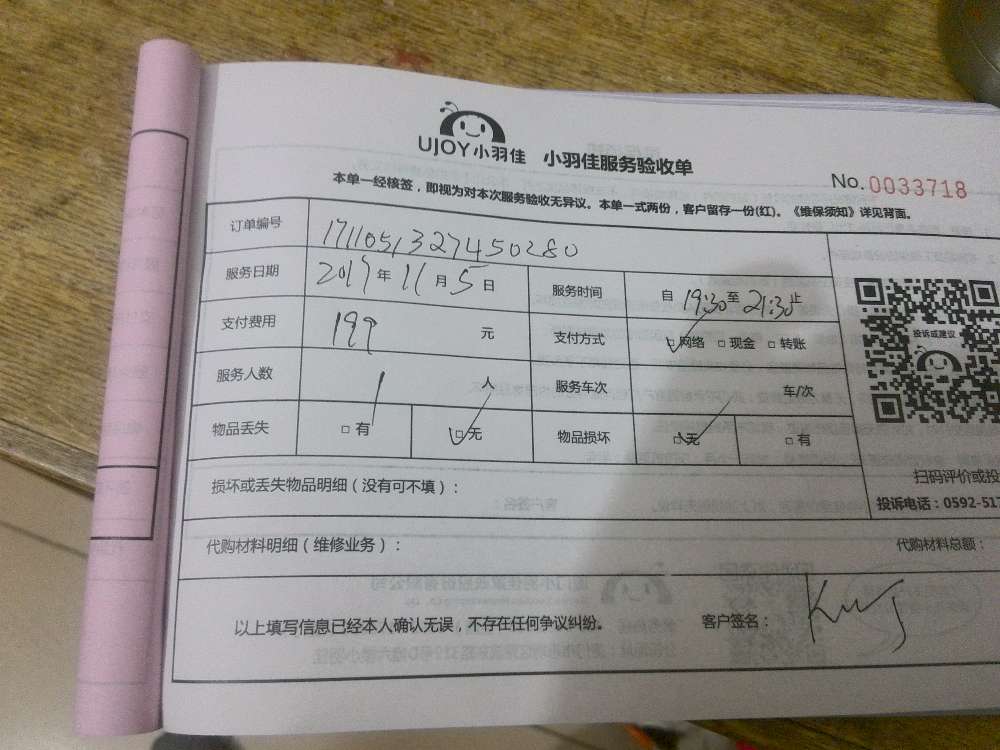 UJOY小羽佳 小羽佳服务验收单
No.0033718
本单一经核签，即视为对本次服务验收无异议。本单一式两份，客户留存一份(红)。《维保须知》详见背面。
订单编号 1711051327450280
服务日期 2017年11月5日 服务时间 自19:30至21:30止
支付费用 199 元 支付方式 ☑网络 □现金 □转账
服务人数 1 人 服务车次 车/次
物品丢失 □有 ☑无 物品损坏 ☑无 □有
投诉或建议
扫码评价或投
损坏或丢失物品明细（没有可不填）：
投诉电话：0592-517
代购材料明细（维修业务）：
代购材料总额：
以上填写信息已经本人确认无误，不存在任何争议纠纷。 客户签名：